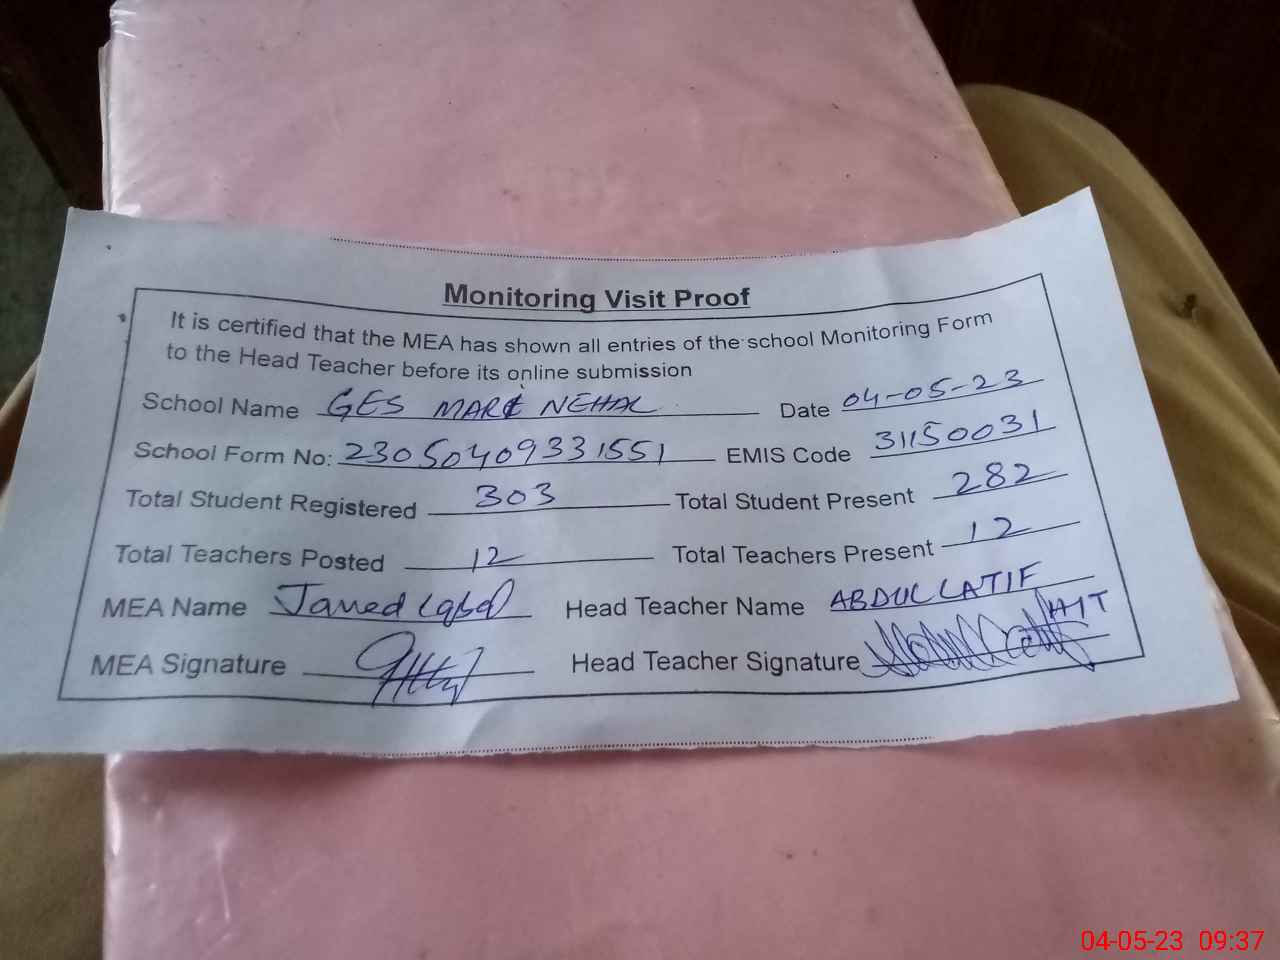 Monitoring Visit Proof
It is certified that the MEA has shown all entries of the school Monitoring Form
to the Head Teacher before its online submission
School Name GES MARK NEHAL Date 04-05-23
School Form No: 23050409331551 EMIS Code 31150031
Total Student Registered 303 Total Student Present 282
Total Teachers Posted 12 Total Teachers Present 12
MEA Name Javed Iqbal Head Teacher Name ABDUL LATIF
MEA Signature Head Teacher Signature
04-05-23 09:37